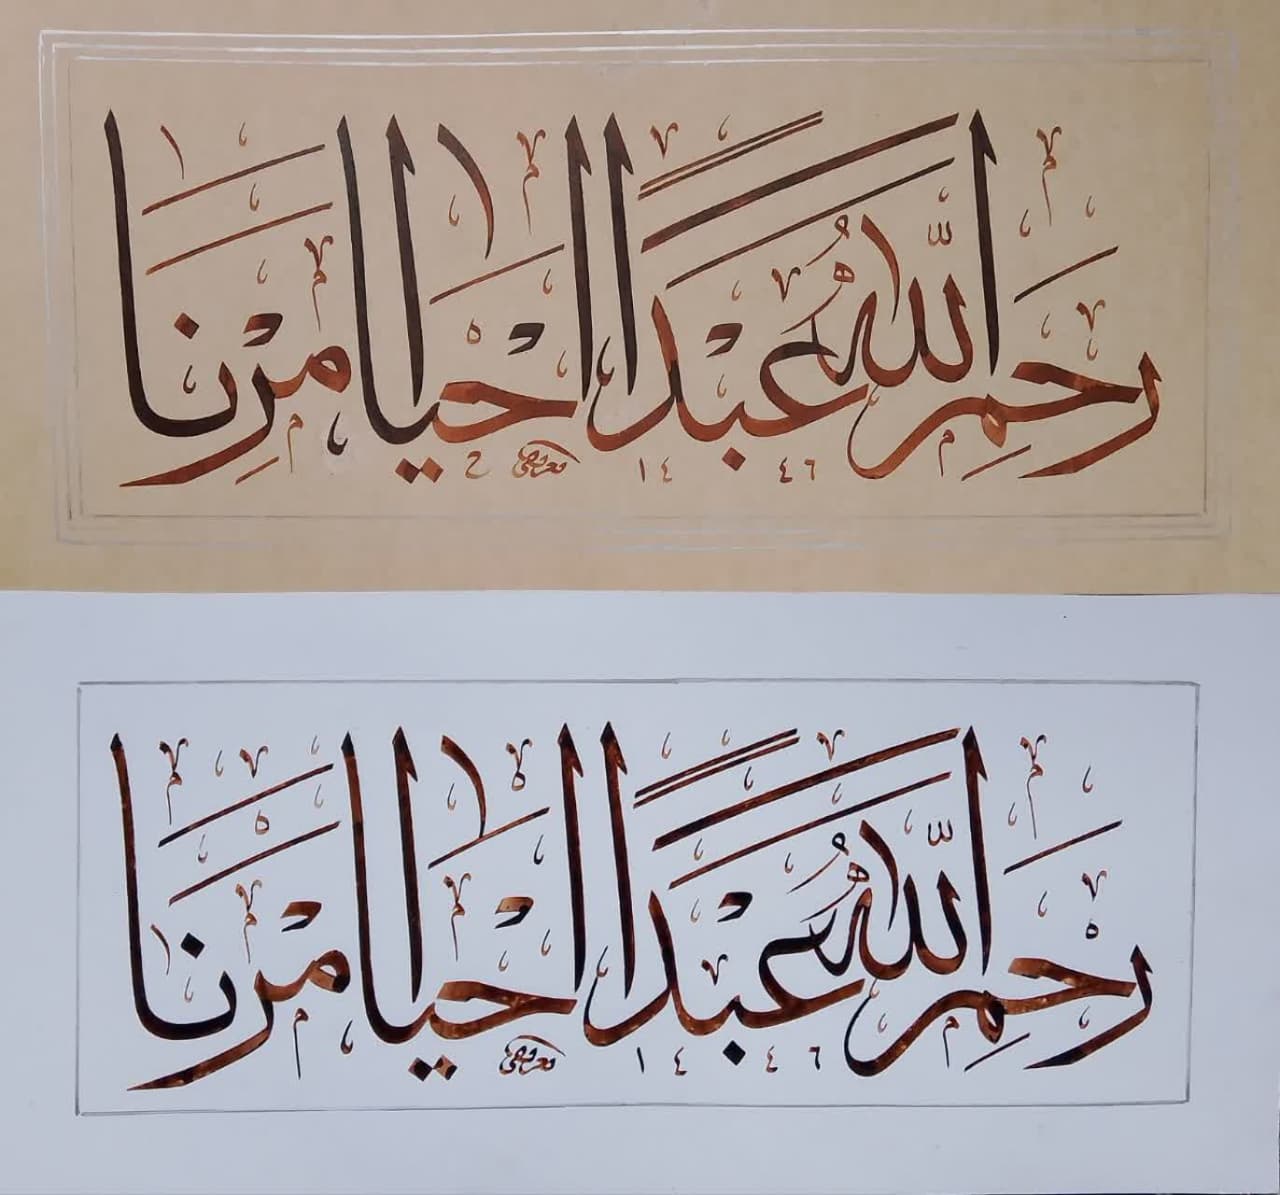 رَحِمَ اللّٰهُ عَبْدًا أَحْيَا أَمْرَنَا
١٤٤٦
رَحِمَ اللّٰهُ عَبْدًا أَحْيَا أَمْرَنَا
١٤٤٦